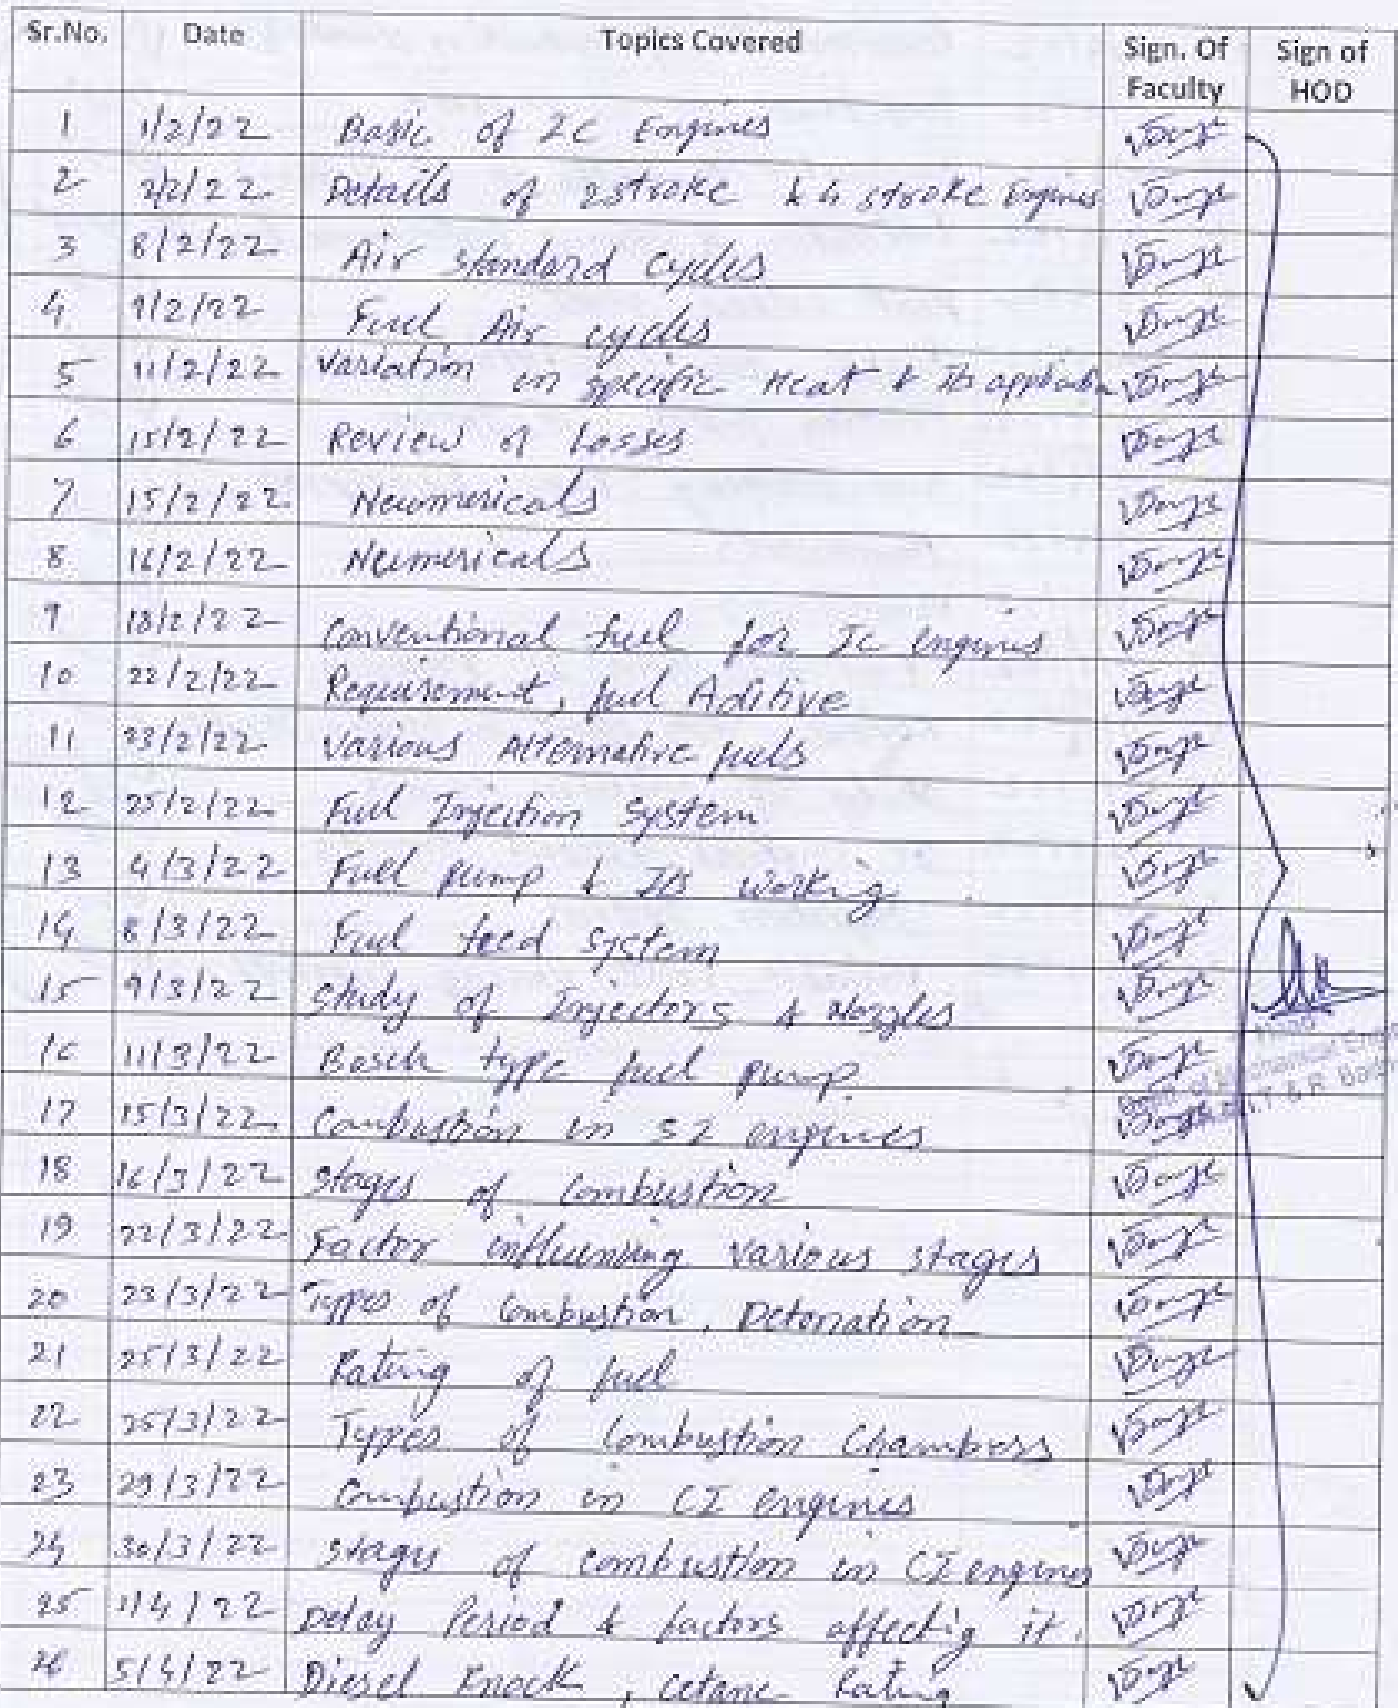 Sr.No. Date Topics Covered Sign. Of Faculty Sign of HOD
1 1/2/22 Basic of IC Engines
2 2/2/22 Details of 2 stroke & 4 stroke Engines
3 8/2/22 Air standard cycles
4 9/2/22 Fuel Air cycles
5 11/2/22 Variation in specific Heat & Its
6 15/2/22 Review of Losses
7 15/2/22 Neumericals
8 16/2/22 Neumericals
9 18/2/22 Conventional fuel for Ic engines
10 22/2/22 Requirement, fuel Aditive
11 23/2/22 Various Alternative fuels
12 25/2/22 Fuel Injection System
13 4/3/22 Fuel pump & Its working
14 8/3/22 Fuel feed System
15 9/3/22 Study of Injectors & Nozzles
16 11/3/22 Bosch type fuel pump
17 15/3/22 Combustion in SI engines
18 16/3/22 Stages of Combustion
19 22/3/22 Factor influensing various stages
20 23/3/22 Types of Combustion, Detonation
21 25/3/22 Rating of fuel
22 25/3/22 Types of Combustion Chambers
23 29/3/22 Combustion in CI engines
24 30/3/22 Stages of combustion in CI engines
25 1/4/22 Delay Period & factors affectig it.
26 5/4/22 Diesel Knock, cetane Rating